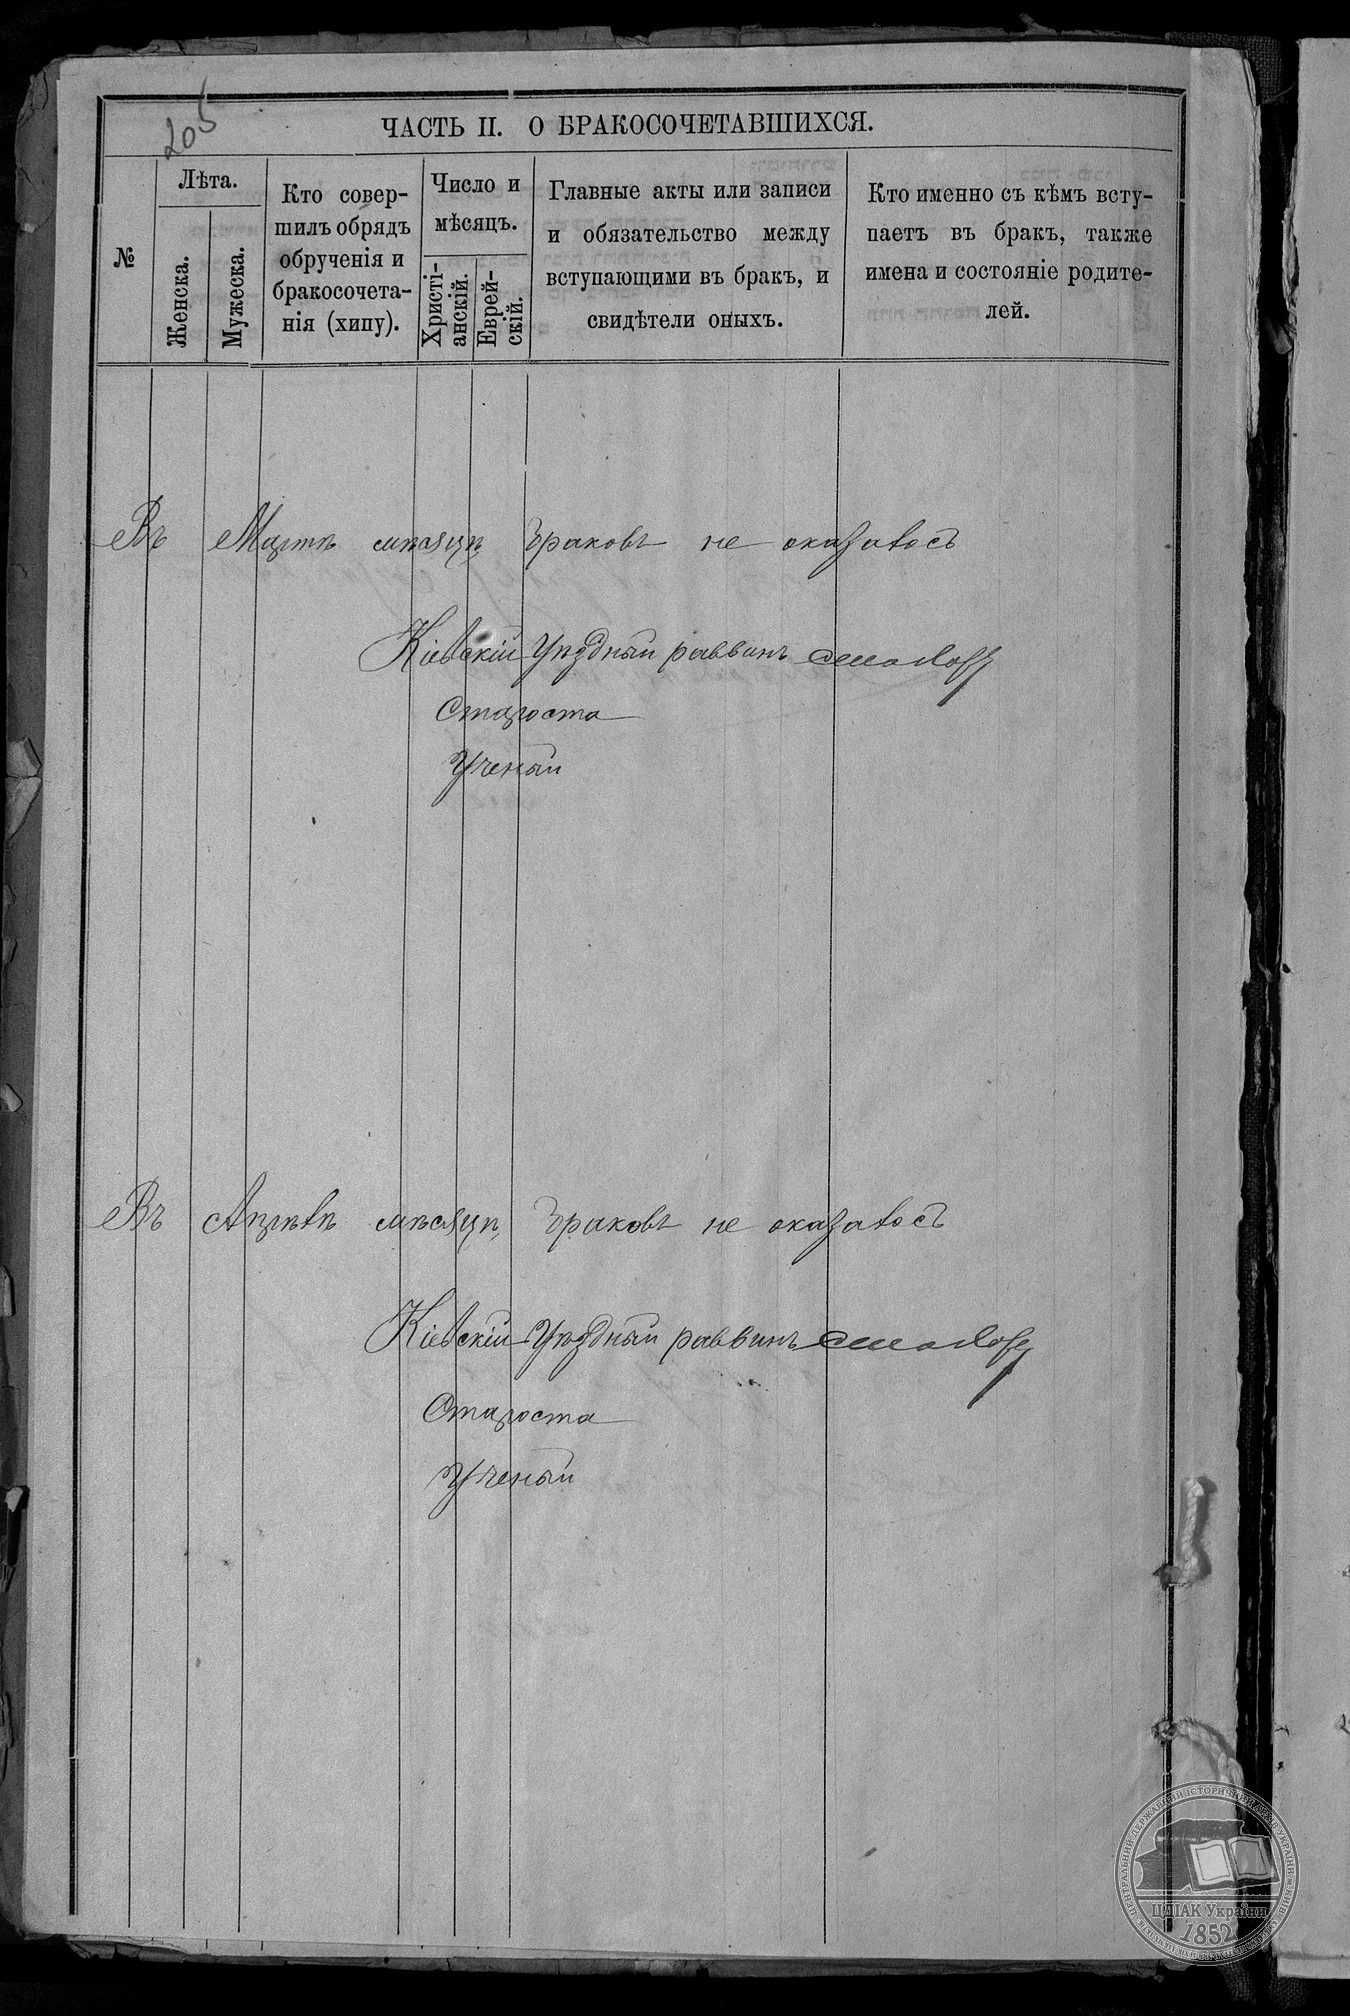 205
ЧАСТЬ II. О БРАКОСОЧЕТАВШИХСЯ.
№
Лѣта.
Женска.
Мужеска.
Кто совер-
шилъ обрядъ
обрученія и
бракосочета-
нія (хипу).
Число и
мѣсяцъ.
Христі-
анскій.
Еврей-
скій.
Главные акты или записи
и обязательство между
вступающими въ бракъ, и
свидѣтели оныхъ.
Кто именно съ кѣмъ всту-
паетъ въ бракъ, также
имена и состояніе родите-
лей.
Въ Мартѣ мѣсяцѣ браковъ не оказалось
Кіевскій Уѣздный раввинъ
Староста
Ученый
Въ Апрѣлѣ мѣсяцѣ браковъ не оказалось
Кіевскій Уѣздный раввинъ
Староста
Ученый
ЦДІАК України
1852